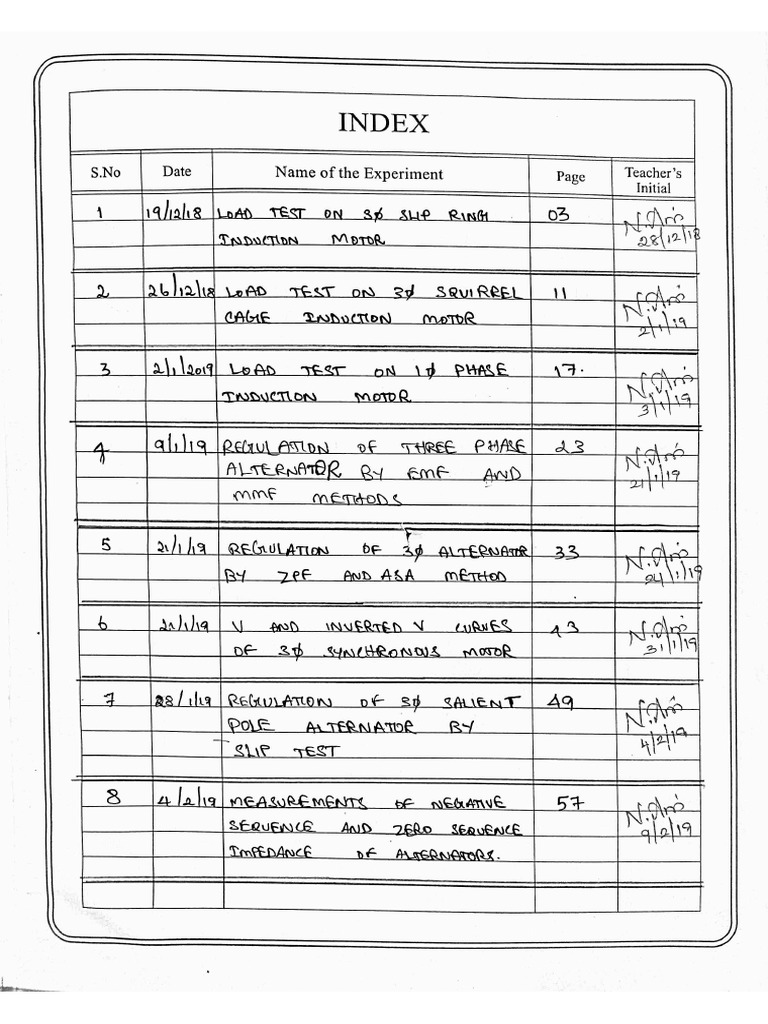 INDEX
S.No Date Name of the Experiment Page Teacher's Initial
1 19/12/18 LOAD TEST ON 3ϕ SLIP RING 03
INDUCTION MOTOR 28/12/18
2 26/12/18 LOAD TEST ON 3ϕ SQUIRREL 11
CAGE INDUCTION MOTOR 2/1/19
3 2/1/2019 LOAD TEST ON 1ϕ PHASE 17.
INDUCTION MOTOR 3/1/19
4 9/1/19 REGULATION OF THREE PHASE 23
ALTERNATOR BY EMF AND 21/1/19
MMF METHODS
5 21/1/19 REGULATION OF 3ϕ ALTERNATOR 33
BY ZPF AND ASA METHOD 24/1/19
6 21/1/19 V AND INVERTED V CURVES 43
OF 3ϕ SYNCHRONOUS MOTOR 31/1/19
7 28/1/19 REGULATION OF 3ϕ SALIENT 49
POLE ALTERNATOR BY 4/2/19
SLIP TEST
8 4/2/19 MEASUREMENTS OF NEGATIVE 57
SEQUENCE AND ZERO SEQUENCE 9/2/19
IMPEDANCE OF ALTERNATORS.